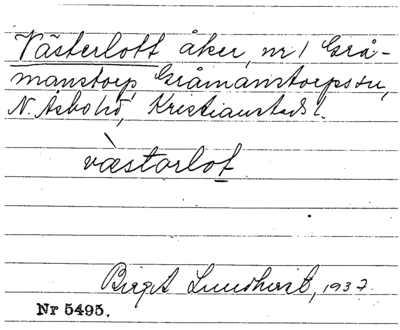 Västerlott åker, nr 1 Grå-
manstorp, Gråmanstorps sn,
N. Åsbo hd, Kristianstads l.
vàstarlot
Birgit Lundkvist, 1937.
Nr 5495.